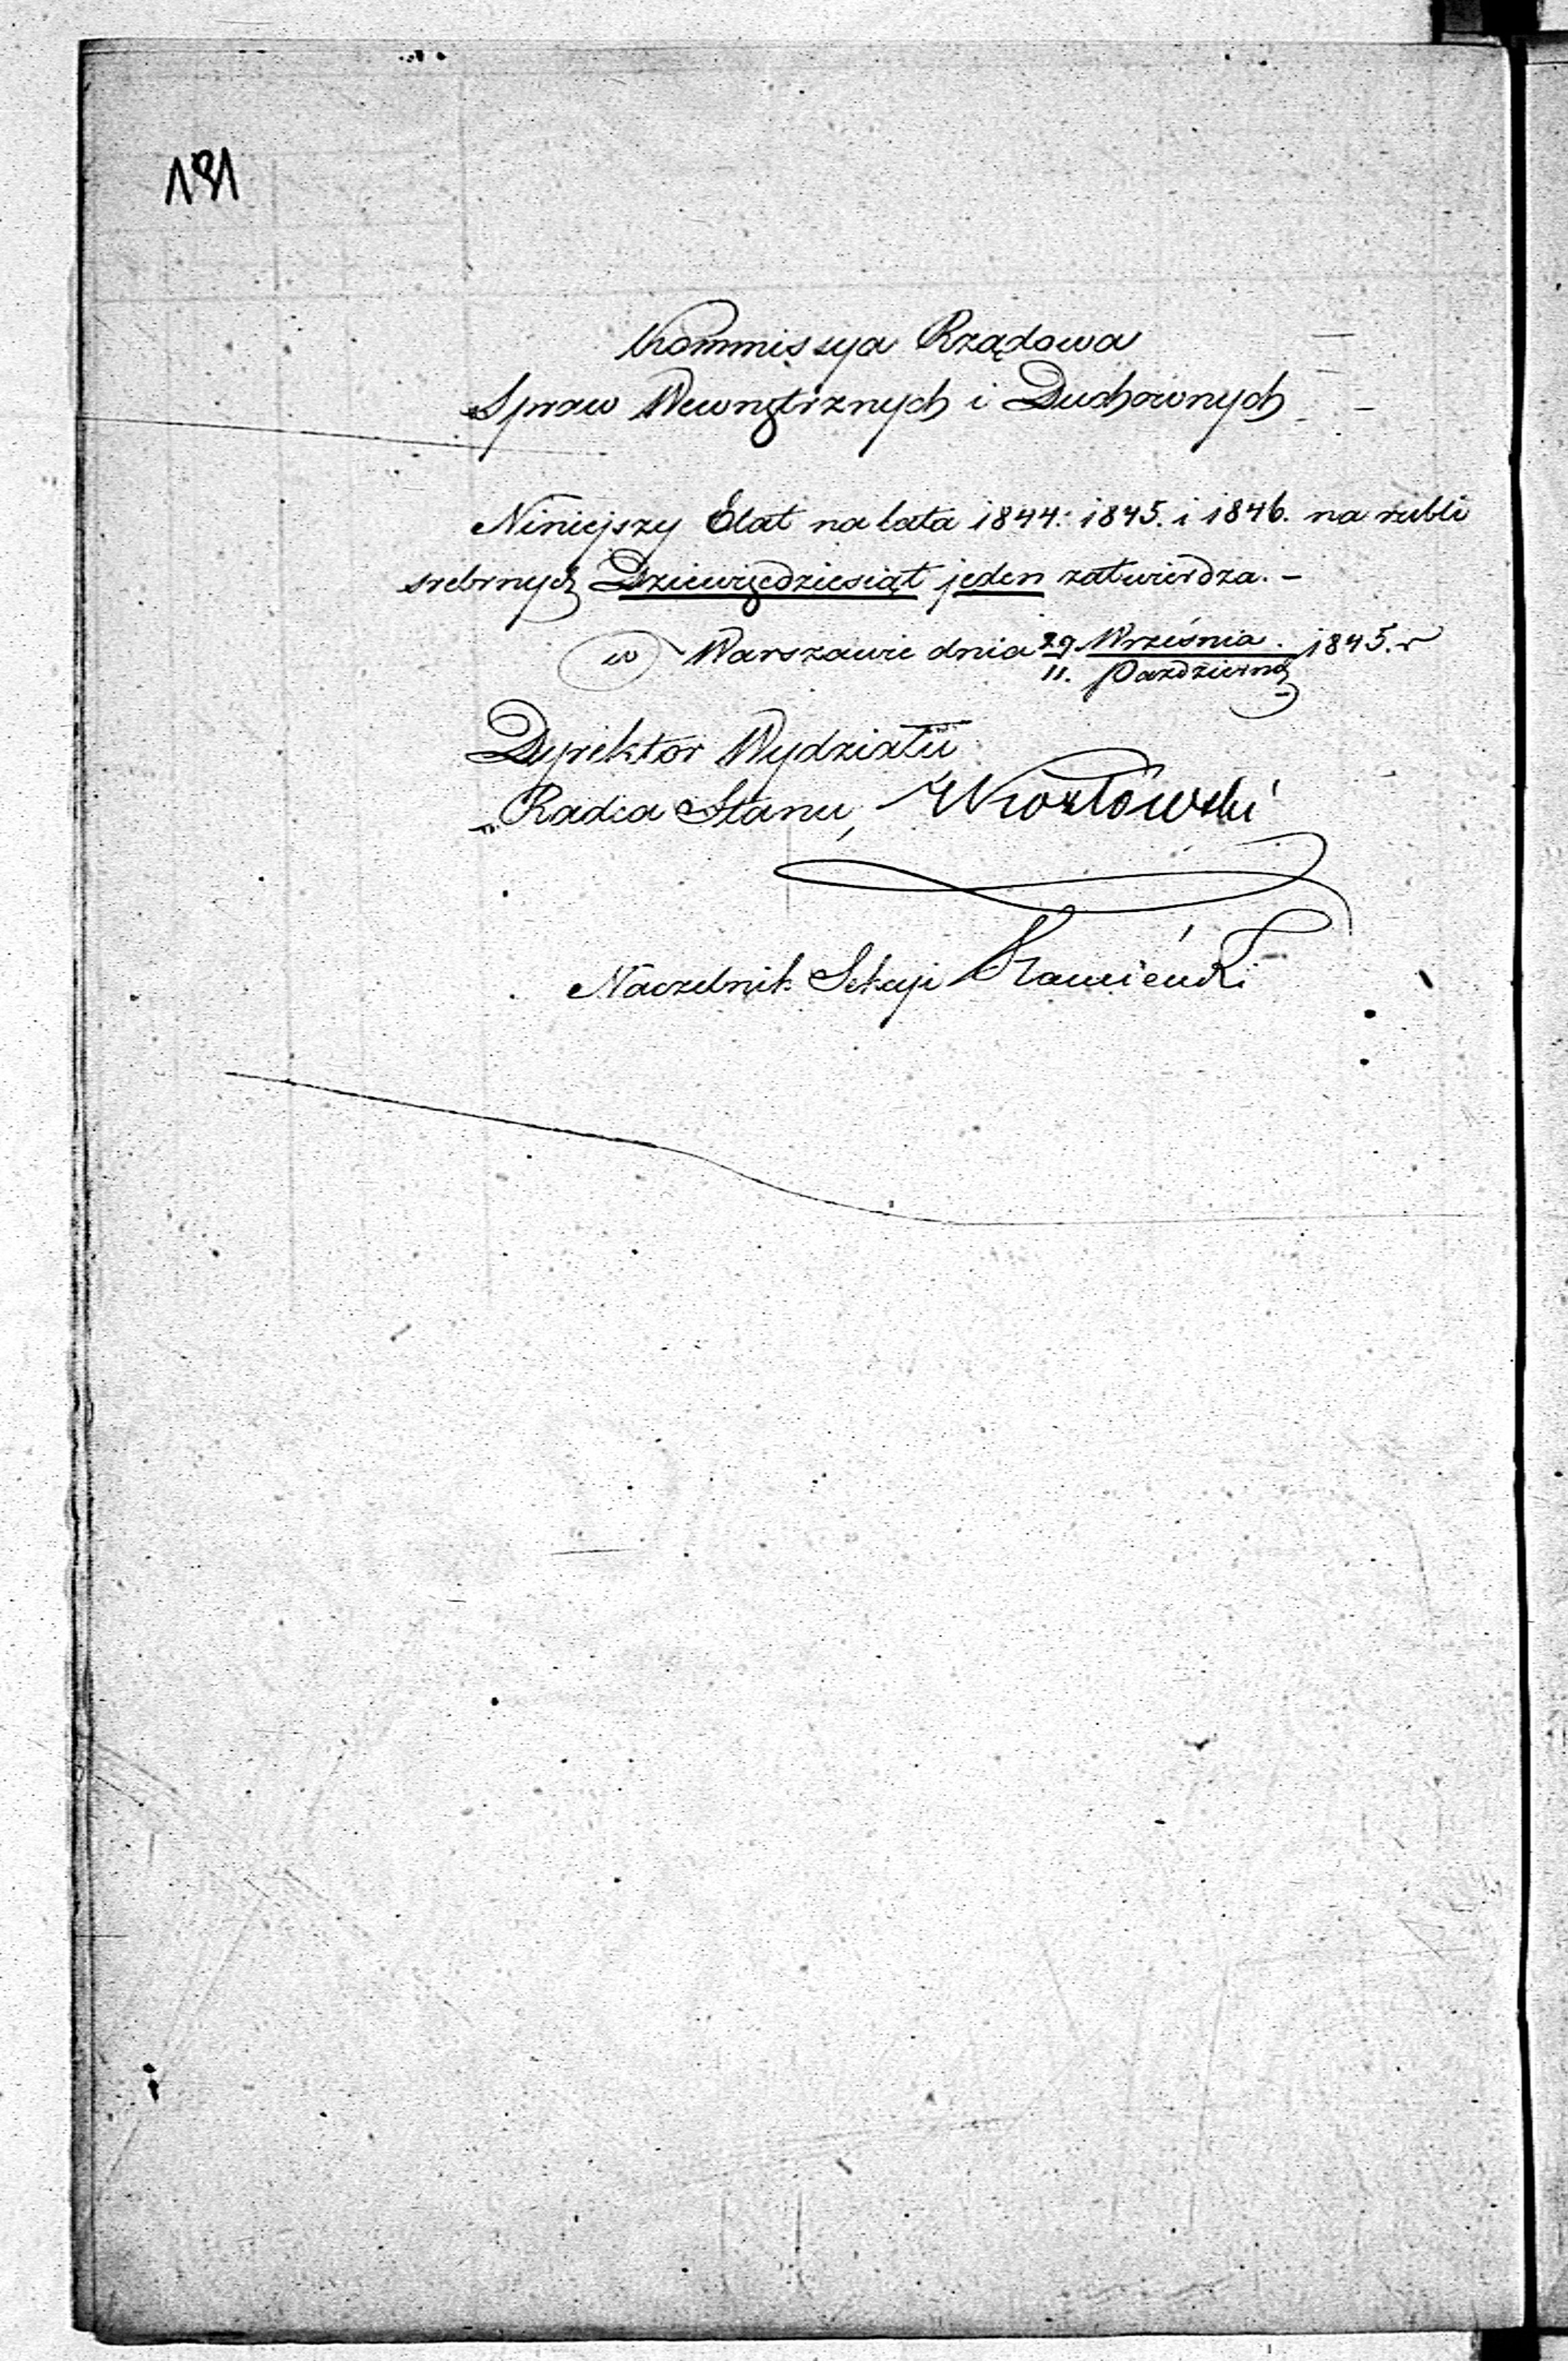 191
Kommissya Rządowa
Spraw Wewnętrznych i Duchownych
Niniejszy Etat na lata 1844. 1845. i 1846. na rubli
srebrnych Dziewięćdziesiąt jeden zatwierdza. –
w Warszawie dnia 29 Września. 1845. r
11. Październ
Dyrektor Wydziału
Radca Stanu, Kozłowski
Naczelnik Sekcyi Kamieński